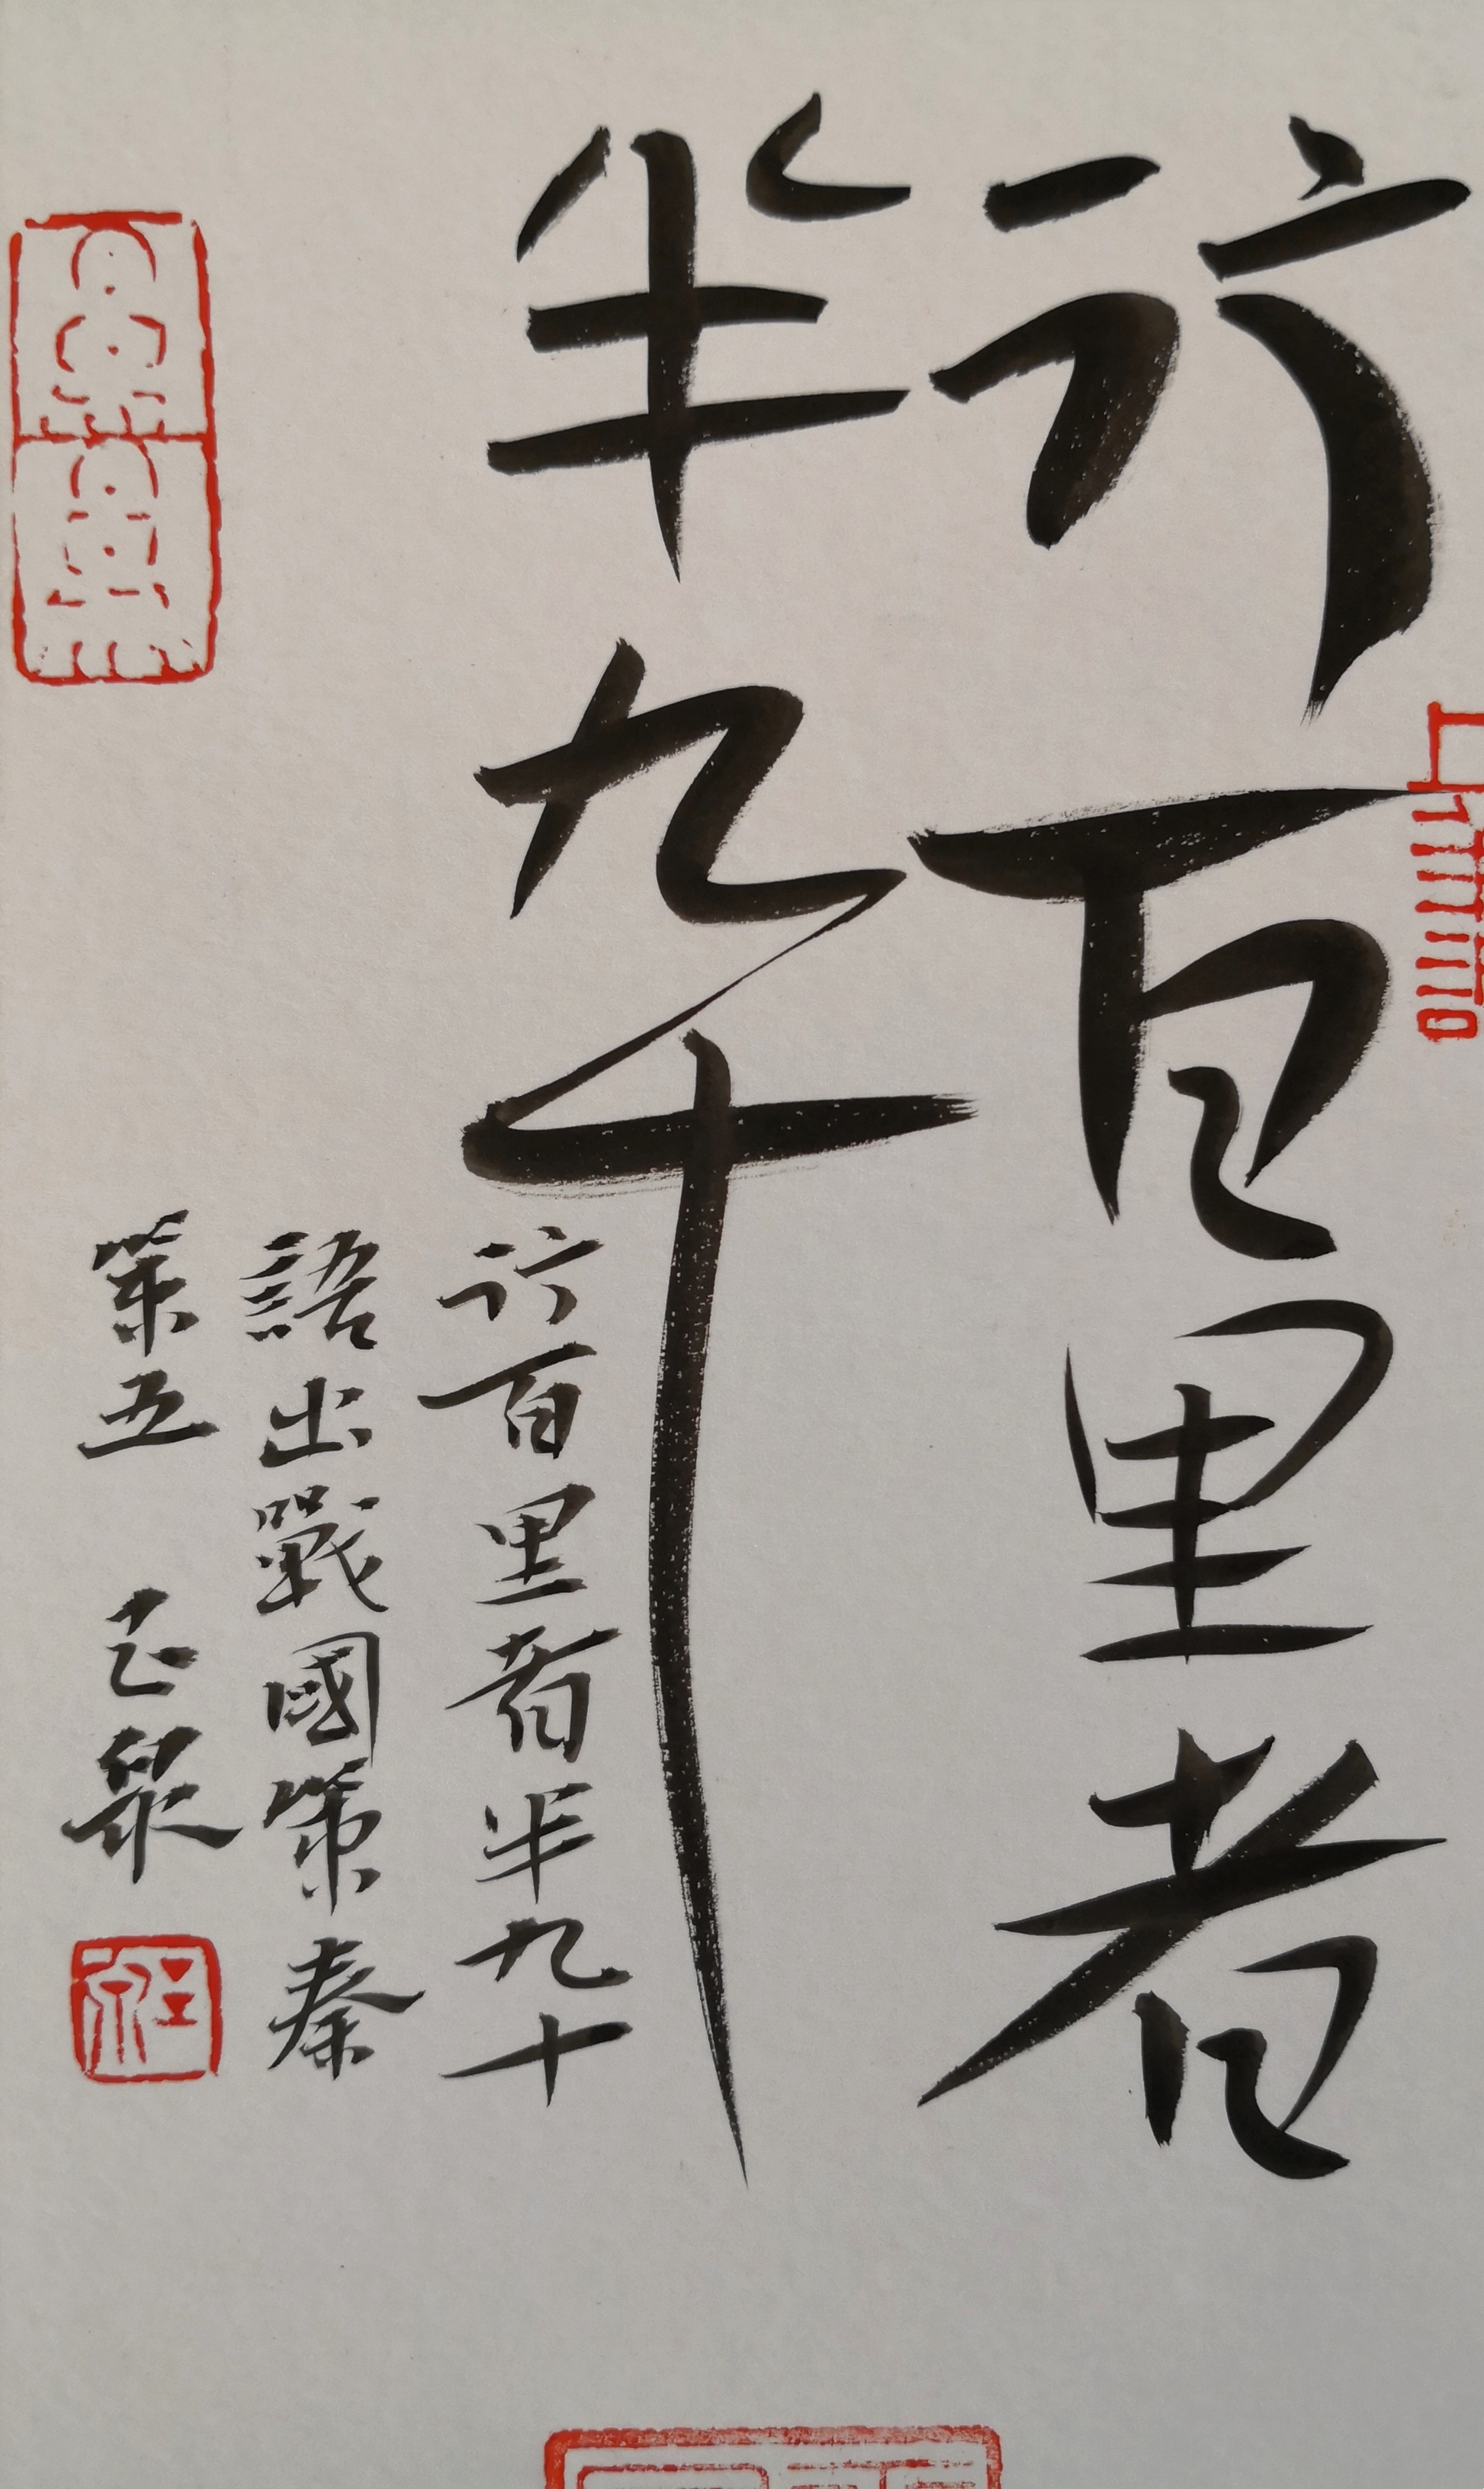 行百里者
半九十
行百里者半九十
語出戰國策秦
策五 正泉